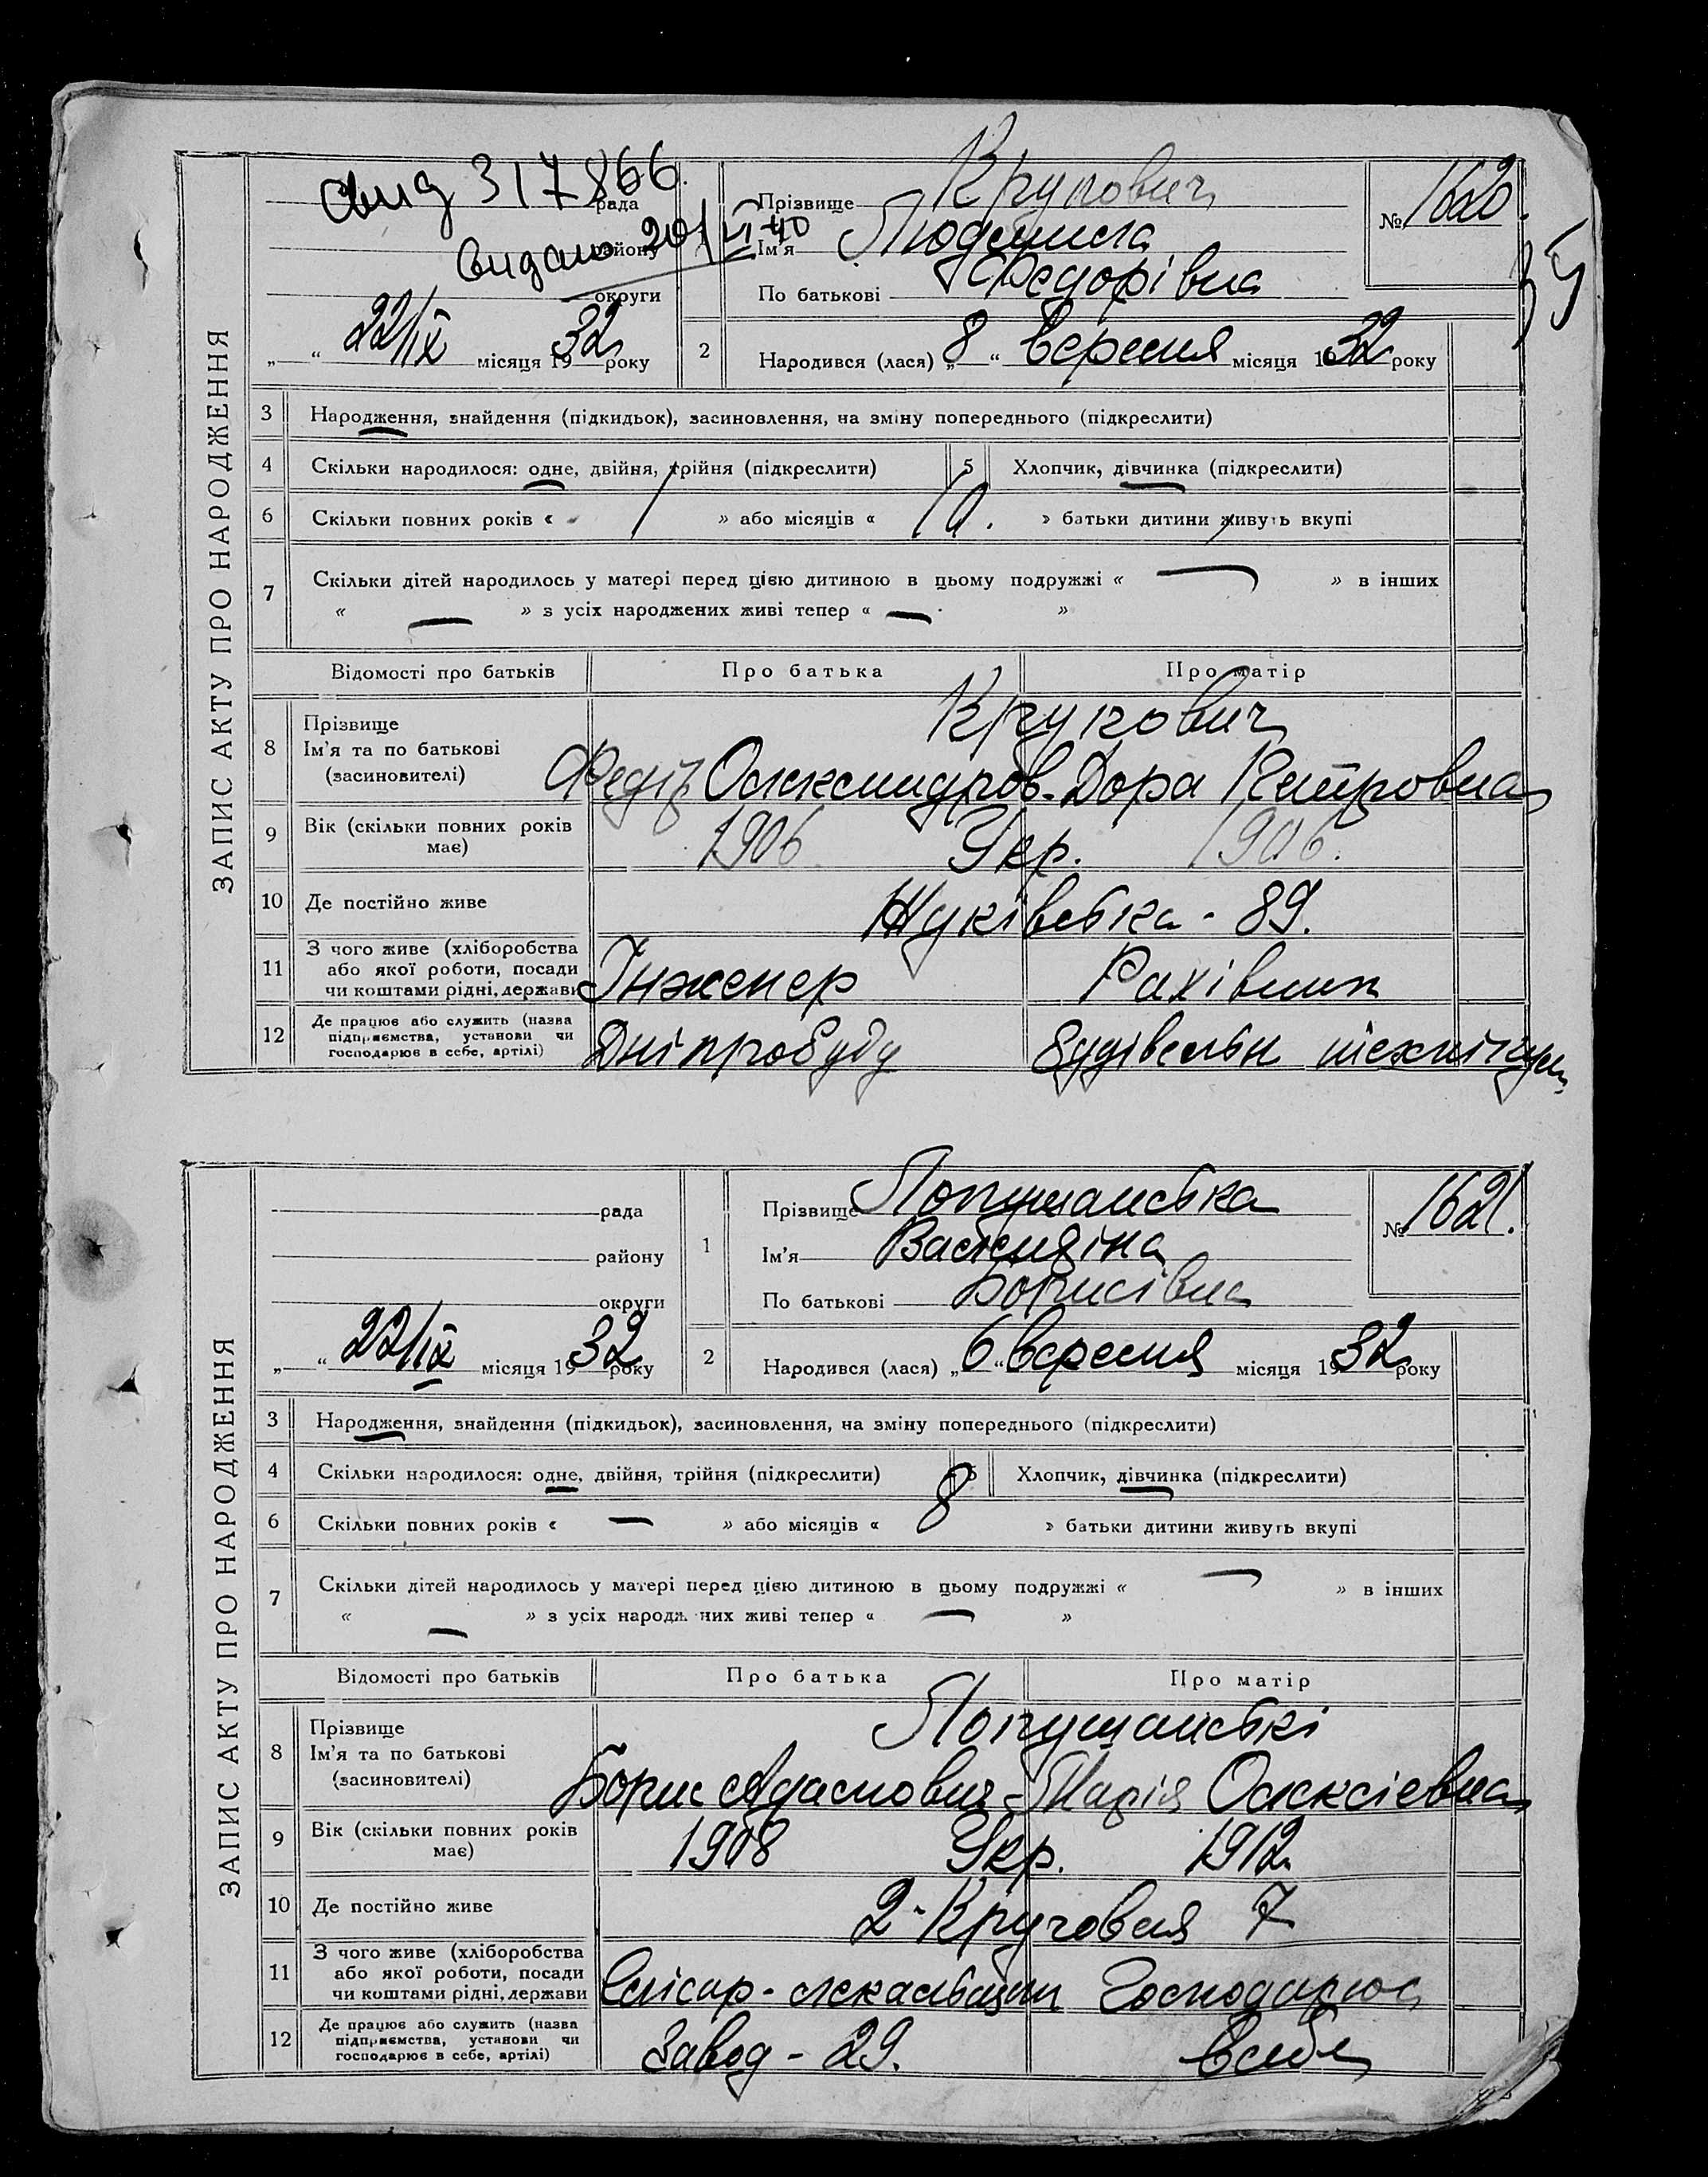 ЗАПИС АКТУ ПРО НАРОДЖЕННЯ
317866
рада
видано 20/VI-40
району
округи
22/IX місяця 1932 року
Прізвище Крупович
Ім'я Людмила
По батькові Федорівна
№ 1620.
2 Народився (лася) „8“ вересня місяця 1932 року
3 Народження, знайдення (підкидьок), засиновлення, на зміну попереднього (підкреслити)
4 Скільки народилося: одне, двійня, трійня (підкреслити)
5 Хлопчик, дівчинка (підкреслити)
6 Скільки повних років « / » або місяців « 10. » батьки дитини живуть вкупі
7 Скільки дітей народилось у матері перед цією дитиною в цьому подружжі « — » в інших
« — » з усіх народжених живі тепер « — »
Відомості про батьків Про батька Про матір
8 Прізвище Ім'я та по батькові (засиновителі)
Крукович
Федір Олександров. Дора Петровна
9 Вік (скільки повних років має) 1906 Укр. 1906.
10 Де постійно живе Жуківська - 89.
11 З чого живе (хліборобства або якої роботи, посади чи коштами рідні, держави Інженер Рахівник
12 Де працює або служить (назва підприємства, установи чи господарює в себе, артілі) Дніпробуду Будівельн технікум
ЗАПИС АКТУ ПРО НАРОДЖЕННЯ
рада
району
округи
22/IX місяця 1932 року
1 Прізвище Лопушанська
Ім'я
По батькові Борисівна
№ 1621.
2 Народився (лася) „6“ вересня місяця 1932 року
3 Народження, знайдення (підкидьок), засиновлення, на зміну попереднього (підкреслити)
4 Скільки народилося: одне, двійня, трійня (підкреслити)
5 Хлопчик, дівчинка (підкреслити)
6 Скільки повних років « — » або місяців « 8 » батьки дитини живуть вкупі
7 Скільки дітей народилось у матері перед цією дитиною в цьому подружжі « — » в інших
« — » з усіх народжених живі тепер « — »
Відомості про батьків Про батька Про матір
8 Прізвище Ім'я та по батькові (засиновителі)
Лопушанські
Борис Адамович - Марія Олексієвна
9 Вік (скільки повних років має) 1908 Укр. 1912
10 Де постійно живе 2-Круговая 7
11 З чого живе (хліборобства або якої роботи, посади чи коштами рідні, держави Слісар-лекальщик Господарює
12 Де працює або служить (назва підприємства, установи чи господарює в себе, артілі) Завод - 29. в себе